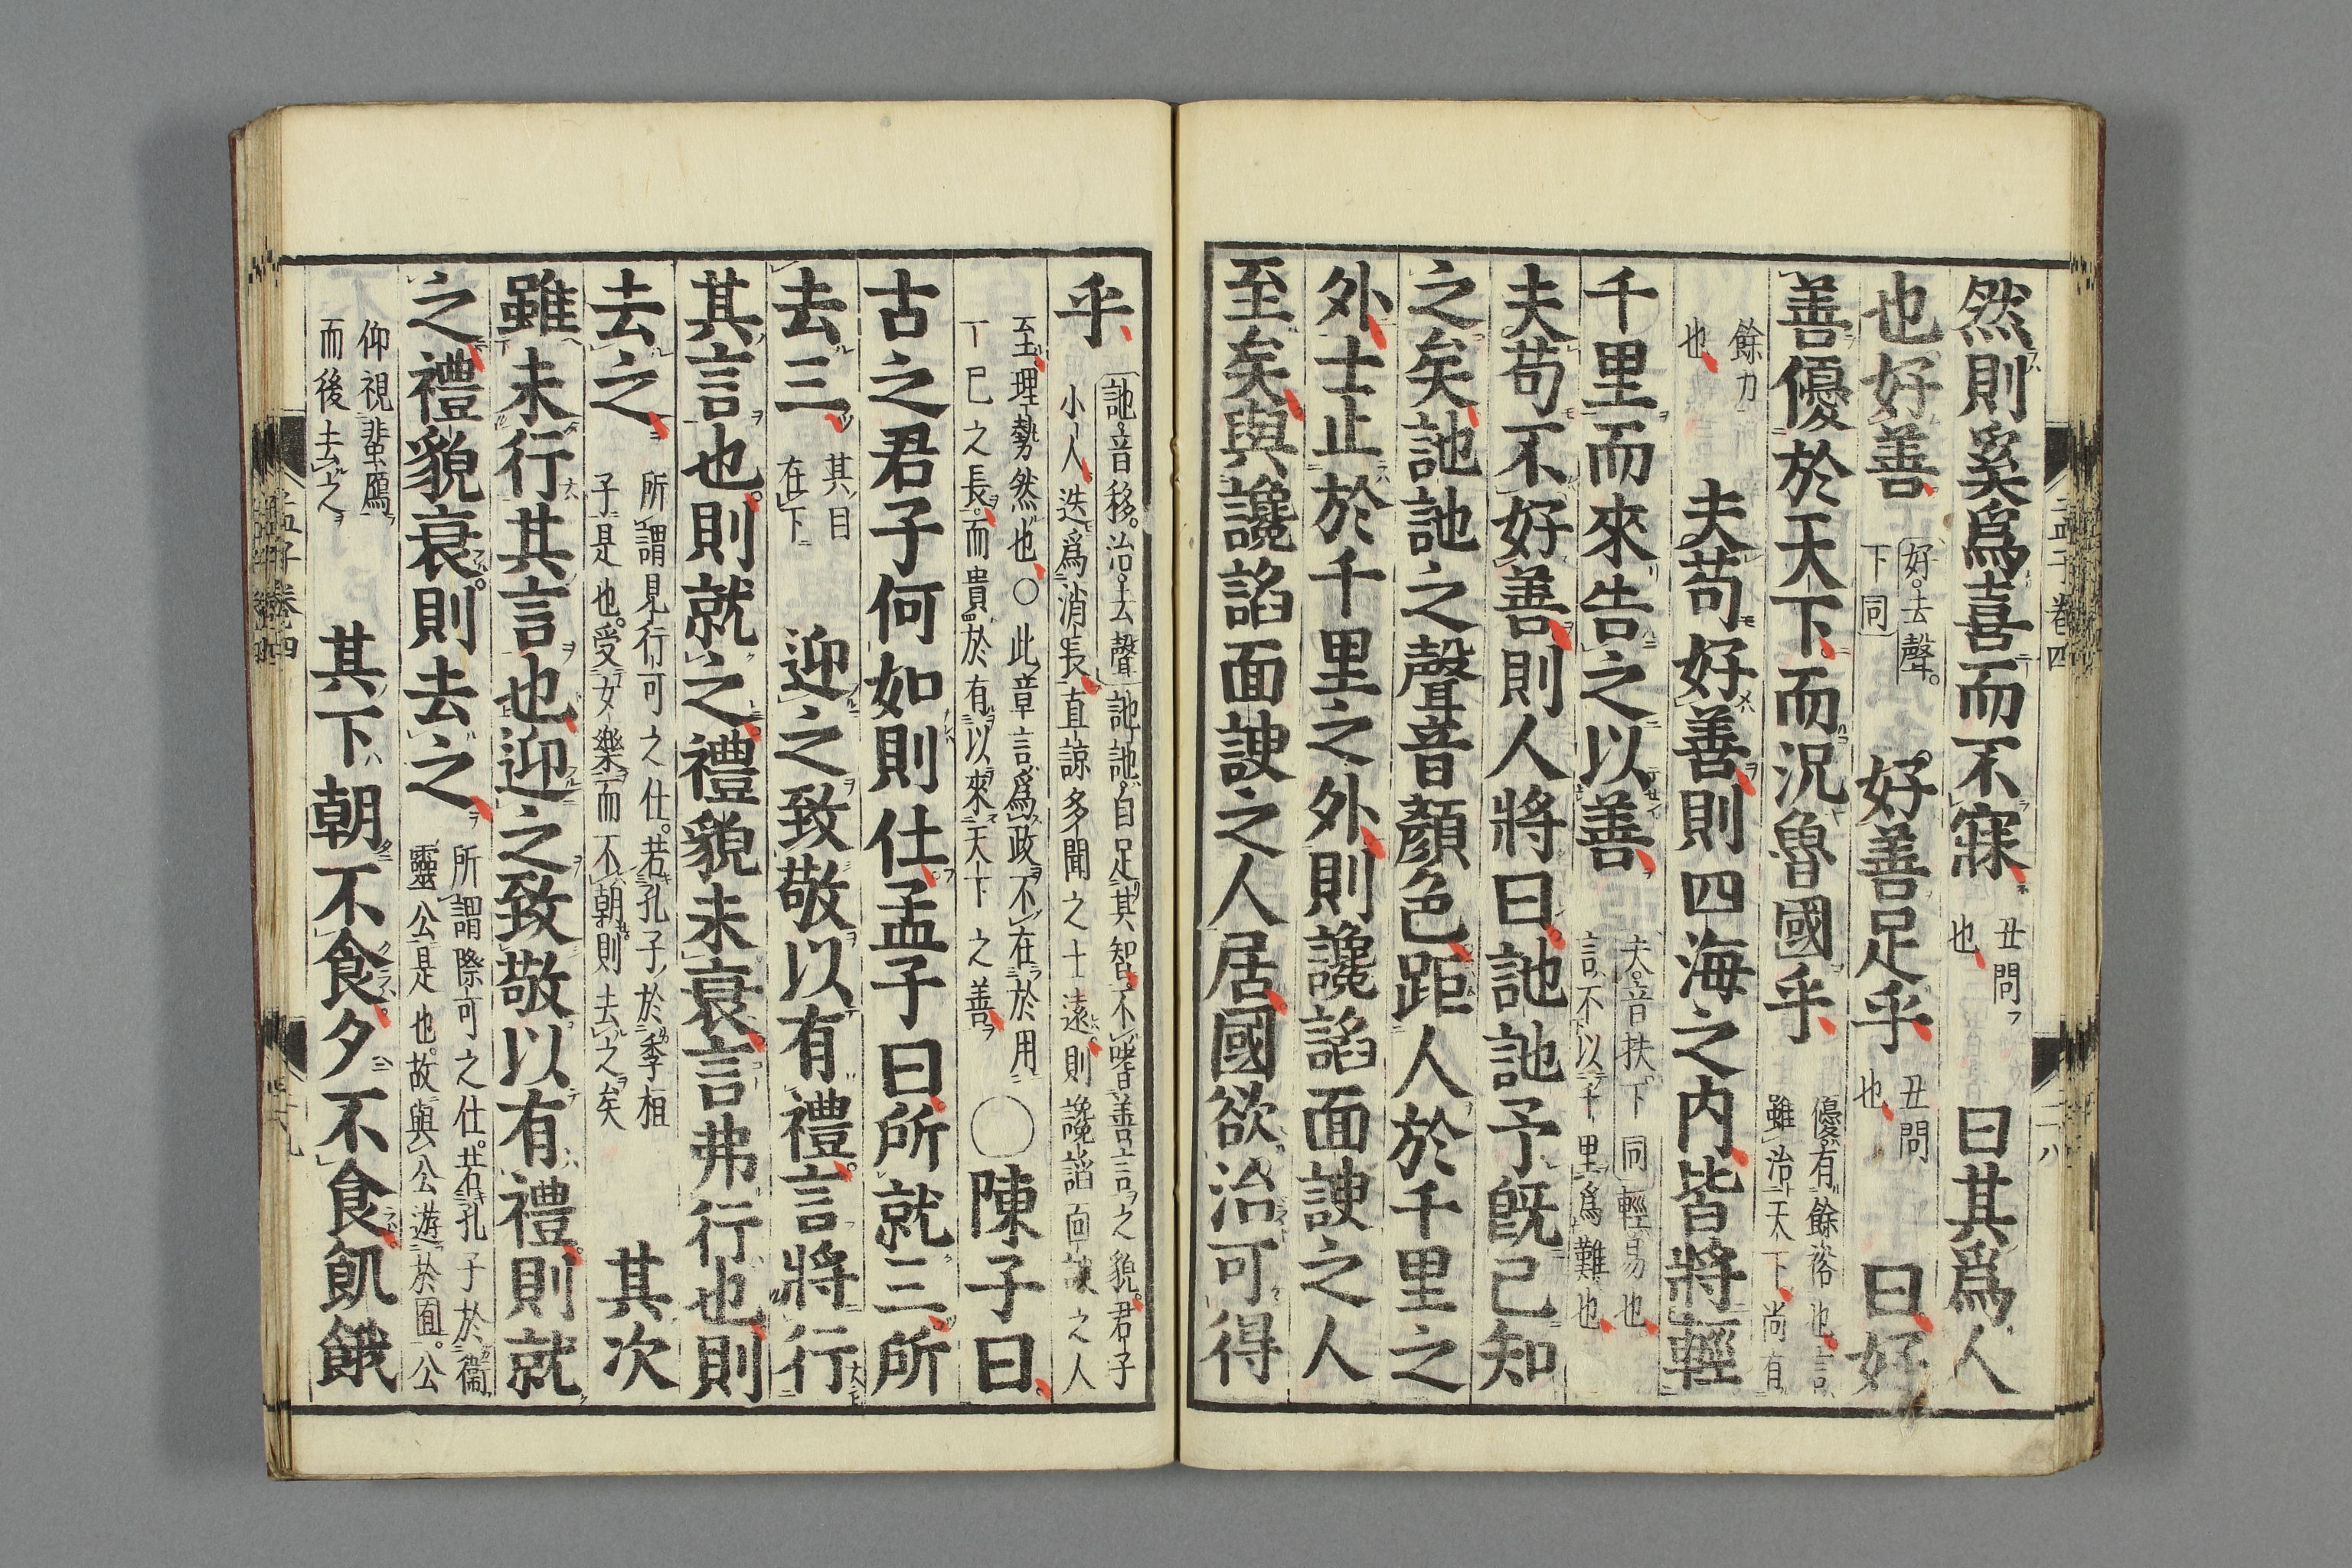 然則奚爲喜而不寐丑問也曰其爲人
也好善好去聲下同好善足乎丑問也曰好
善優於天下而況魯國乎優有餘裕也言雖治天下尚有
餘力也夫苟好善則四海之内皆將輕
千里而來告之以善夫音扶下同輕易也言不以千里爲難也
夫苟不好善則人將曰訑訑予既已知
之矣訑訑之聲音顏色距人於千里之
外士止於千里之外則讒諂面諛之人
至矣與讒諂面諛之人居國欲治可得
孟子卷四
乎訑音移治去聲訑訑自足其智不嗜善言之貌君子小人迭爲消長直諒多聞之士遠則讒諂面諛之人
至理勢然也○此章言爲政不在於用一己之長而貴於有以來天下之善○陳子曰
古之君子何如則仕孟子曰所就三所
去三其目在下迎之致敬以有禮言將行
其言也則就之禮貌未衰言弗行也則
去之所謂見行可之仕若孔子於季桓子是也受女樂而不朝則去之矣其次
雖未行其言也迎之致敬以有禮則就
之禮貌衰則去之所謂際可之仕若孔子於衞靈公是也故與公遊於囿公
仰視蜚鴈而後去之其下朝不食夕不食飢餓
孟子卷四